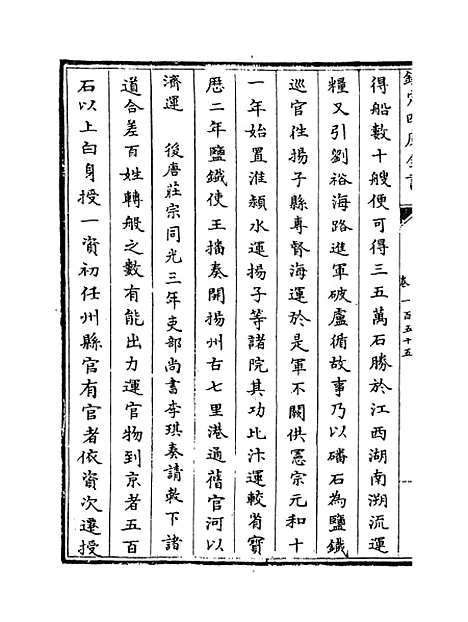 欽定四庫全書
卷一百五十五
得船數十艘便可得三五萬石勝於江西湖南溯流運
糧又引劉裕海路進軍破盧循故事乃以磻石為鹽鐵
巡官往揚子縣專督海運於是軍不闕供憲宗元和十
一年始置淮潁水運揚子等諸院其功比汴運較省寶
厯二年鹽鐵使王播奏開揚州古七里港通舊官河以
濟運 後唐莊宗同光三年吏部尚書李琪奏請敕下諸
道合差百姓轉般之數有能出力運官物到京者五百
石以上白身授一資初任州縣官有官者依資次遷授